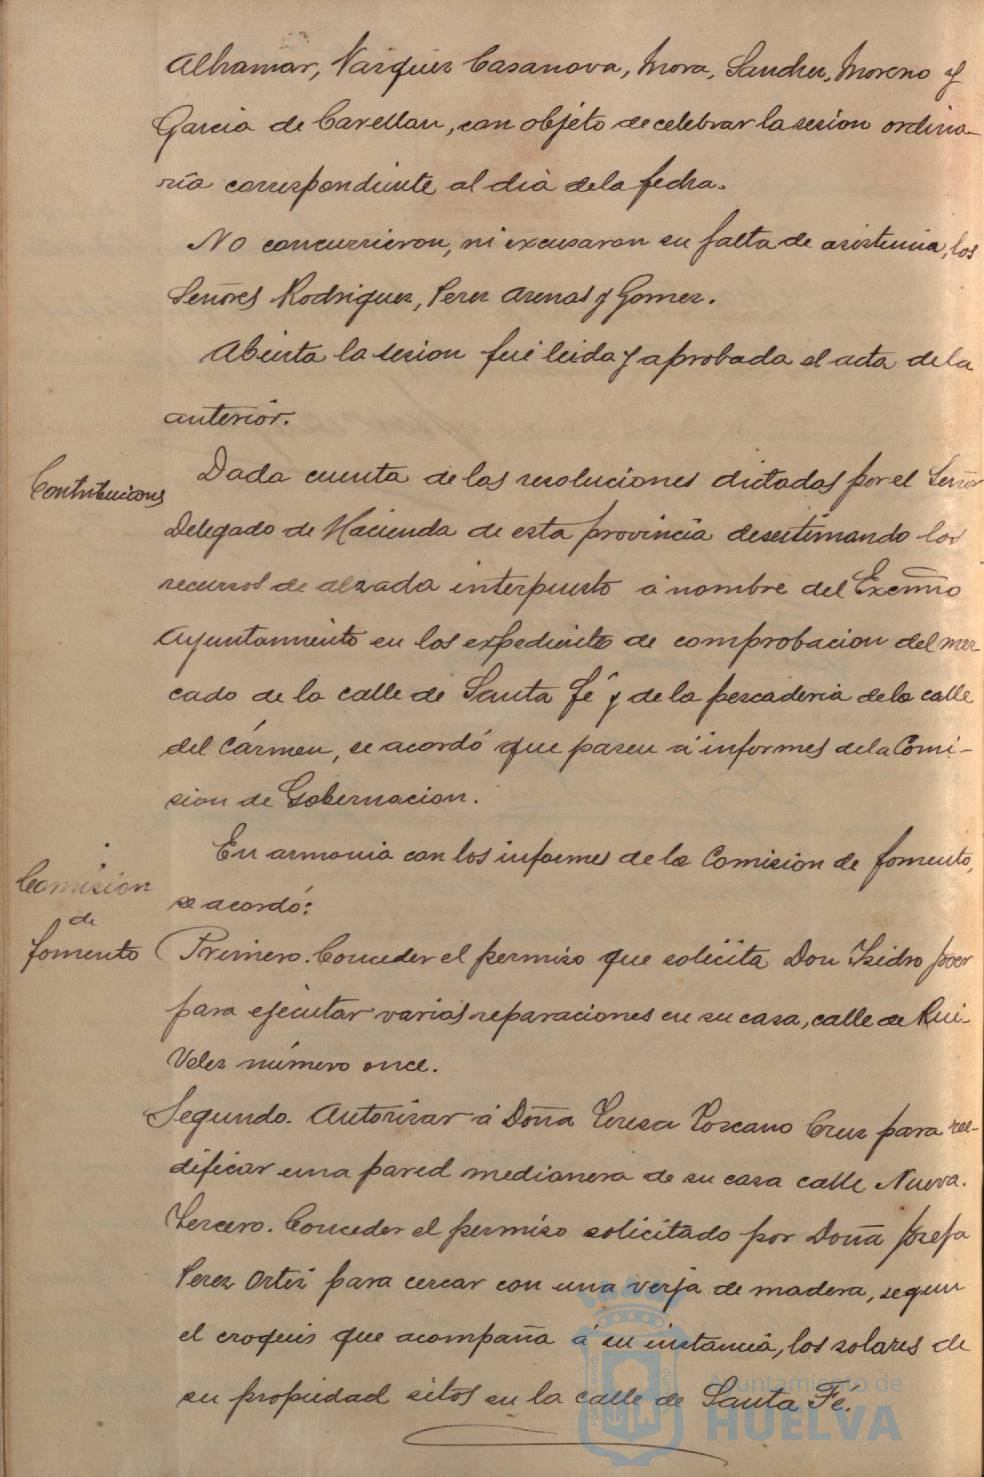 Alhamar, Vazquez Casanova, Mora, Sanchez, Moreno y
Garcia de Cavellan, con objeto de celebrar la sesion ordina-
ria correspondiente al dia de la fecha.
No concurrieron, ni excusaron su falta de asistencia, los
Señores Rodriguez, Perez Arenas y Gomez.
Abierta la sesion fué leida y aprobada el acta de la
anterior.
Contribucions
Dada cuenta de las resoluciones dictadas por el Señor
Delegado de Hacienda de esta provincia desestimando los
recursos de alzada interpuesto á nombre del Excmo
Ayuntamiento en los expedientes de comprobacion del mer-
cado de la calle de Santa Fé y de la pescaderia de la calle
del Cármen, se acordó que pasen á informes de la Comi-
sion de Gobernacion.
En armonia con los informes de la Comision de fomento,
se acordó:
Comision
de
fomento
Primero. Conceder el permiso que solicita Don Isidro
para ejecutar varias reparaciones en su casa, calle de Rui-
Velez número once.
Segundo. Autorizar á Doña Teresa Toscano Cruz para ree-
dificar una pared medianera de su casa calle Nueva.
Tercero. Conceder el permiso solicitado por Doña Josefa
Perez Ortiz para cercar con una verja de madera, segun
el croquis que acompaña á su instancia, los solares de
su propiedad sitos en la calle de Santa Fé.
Ayuntamiento de
HUELVA